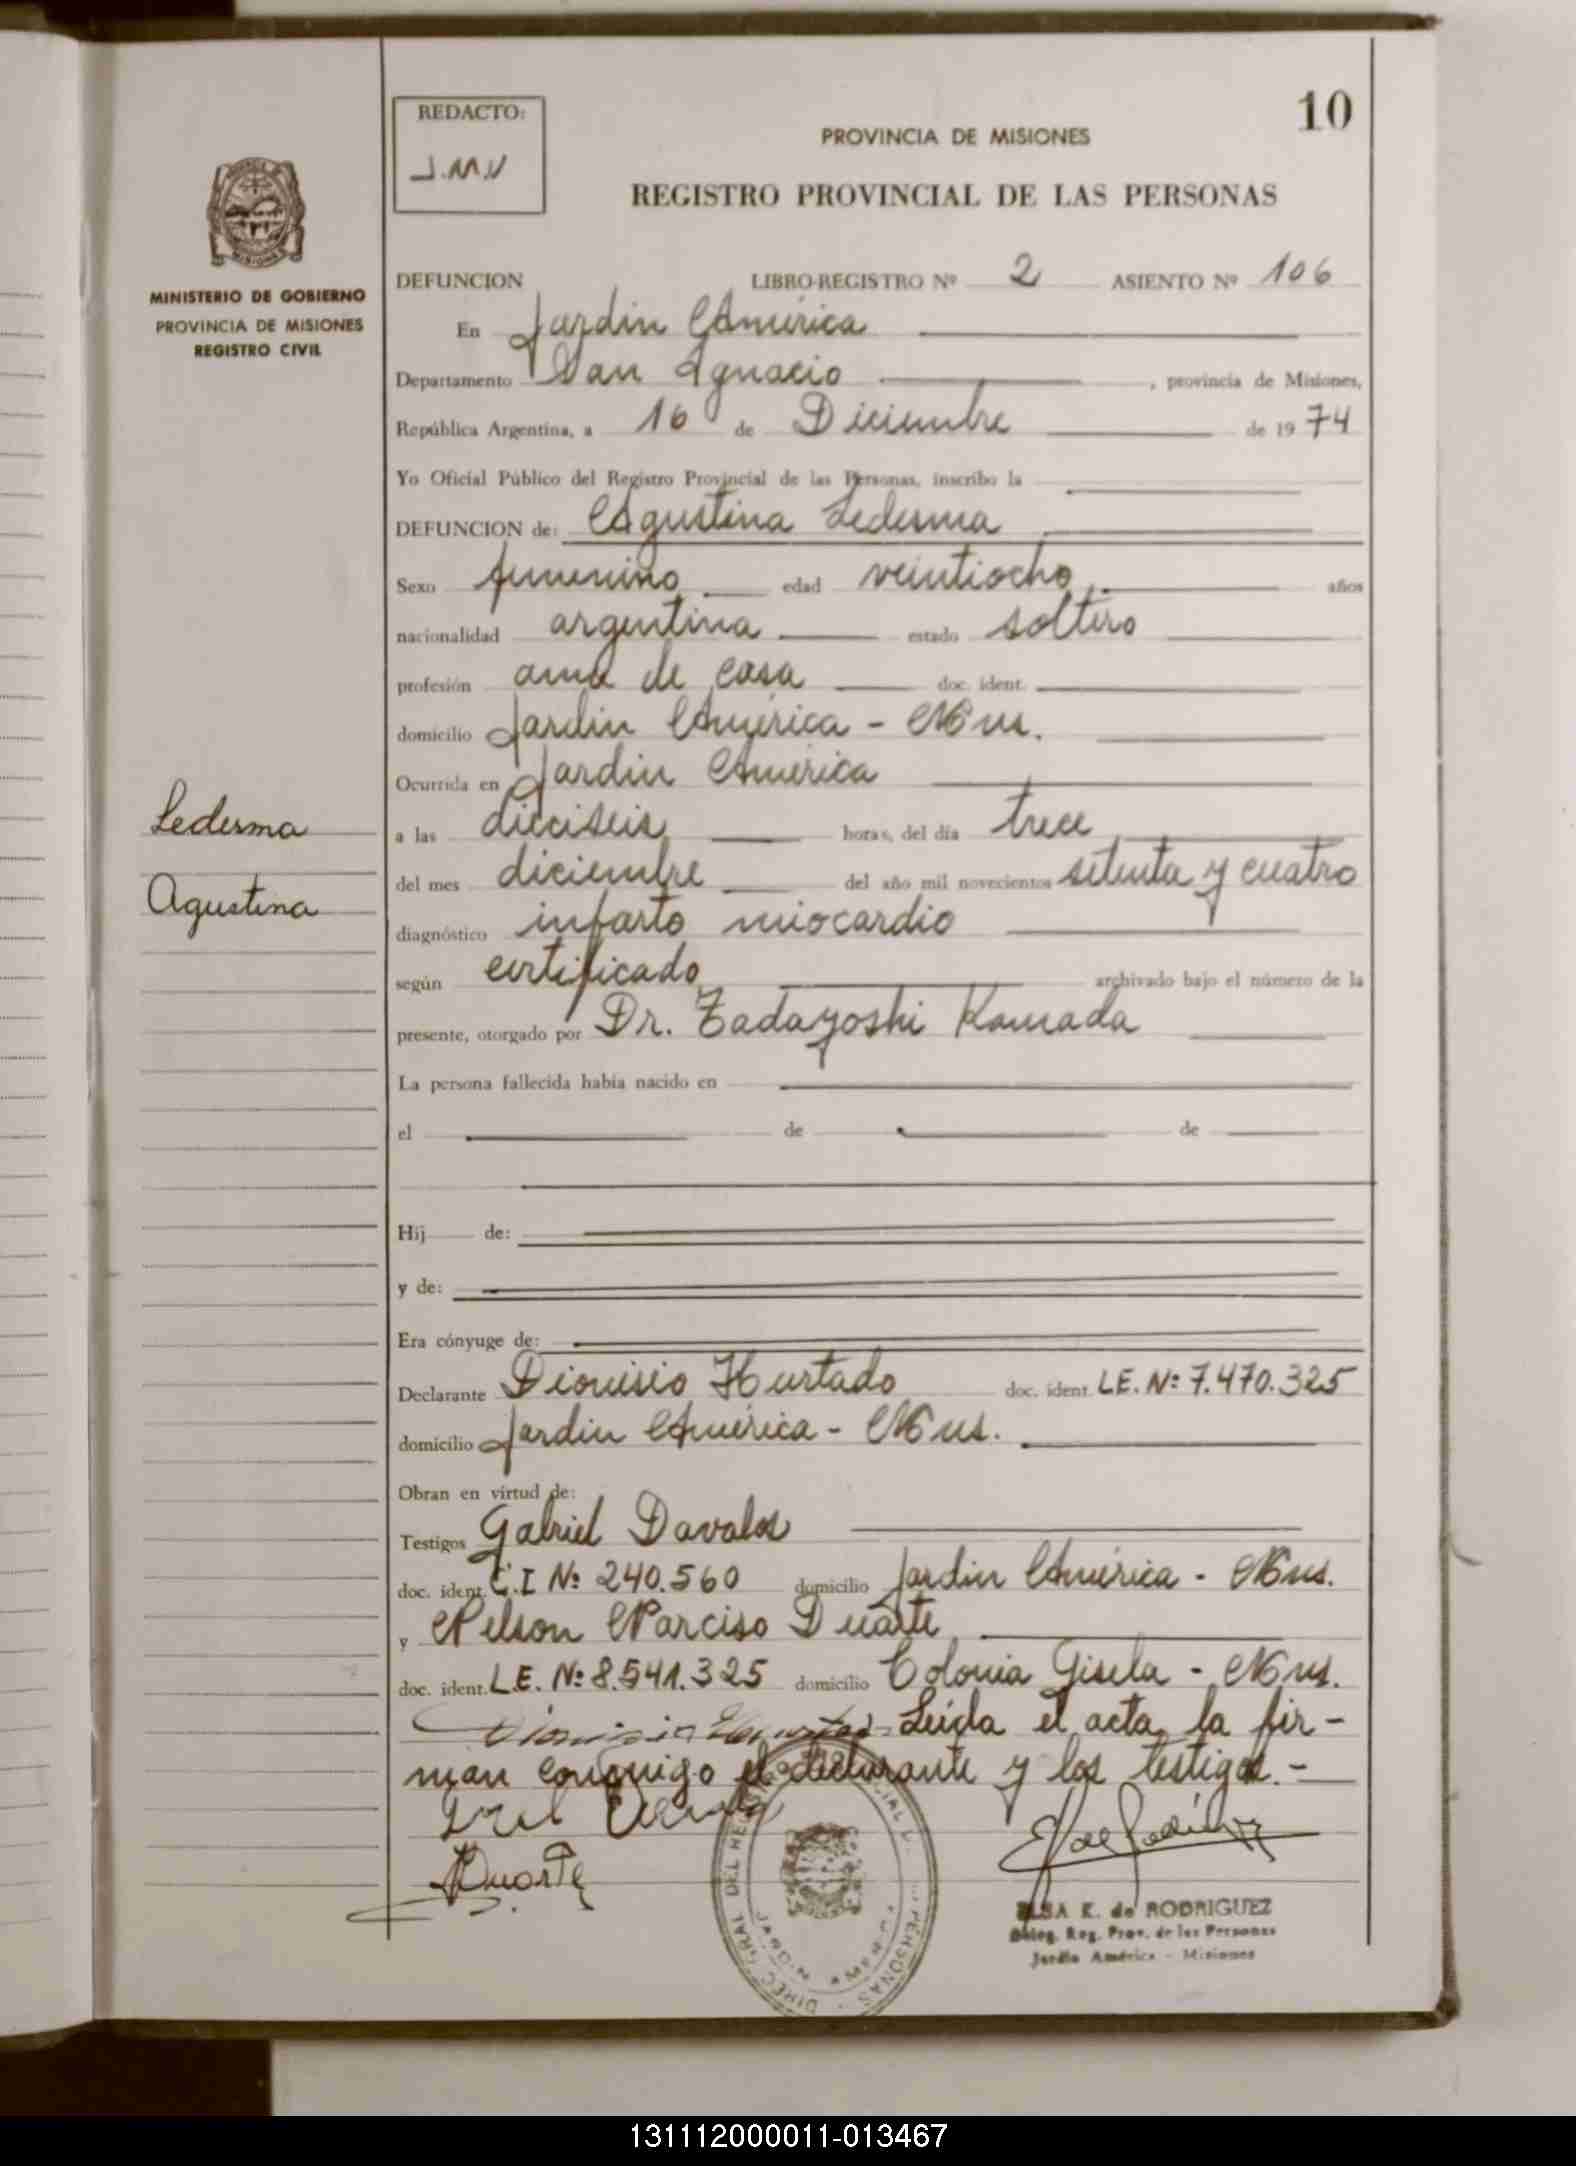 10
REDACTO:
J.M.V
PROVINCIA DE MISIONES
REGISTRO PROVINCIAL DE LAS PERSONAS
MISIONES
MINISTERIO DE GOBIERNO
PROVINCIA DE MISIONES
REGISTRO CIVIL
DEFUNCION LIBRO-REGISTRO Nº 2 ASIENTO Nº 106
En Jardin América
Departamento San Ignacio , provincia de Misiones,
República Argentina, a 16 de Diciembre de 1974
Yo Oficial Público del Registro Provincial de las Personas, inscribo la
DEFUNCION de: Agustina Ledesma
Sexo femenino edad veintiocho años
nacionalidad argentina estado soltero
profesión ama de casa doc. ident.
domicilio Jardin América - Mnes.
Ocurrida en Jardin América
Ledesma
a las dieciseis horas, del día trece
del mes diciembre del año mil novecientos setenta y cuatro
Agustina
diagnóstico infarto miocardio
según certificado archivado bajo el número de la
presente, otorgado por Dr. Tadayoshi Kamada
La persona fallecida había nacido en
el de de
Hij de:
y de:
Era cónyuge de:
Declarante Dionisio Hurtado doc. ident. L.E. Nº 7.470.325
domicilio Jardin América - Mnes.
Obran en virtud de:
Testigos Gabriel Davalos
doc. ident. C.I Nº 240.560 domicilio Jardin América - Mnes.
y Nelson Narciso Duarte
doc. ident. L.E. Nº 8.541.325 domicilio Colonia Gisela - Mnes.
Dionisio Hurtado Leída el acta, la fir-
man conmigo el declarante y los testigos.-
Duarte
DIREC. GRAL DEL PERSONAS
JARDIN AMERICA
ELSA E. de RODRIGUEZ
Deleg. Reg. Prov. de las Personas
Jardín América - Misiones
131112000011-013467